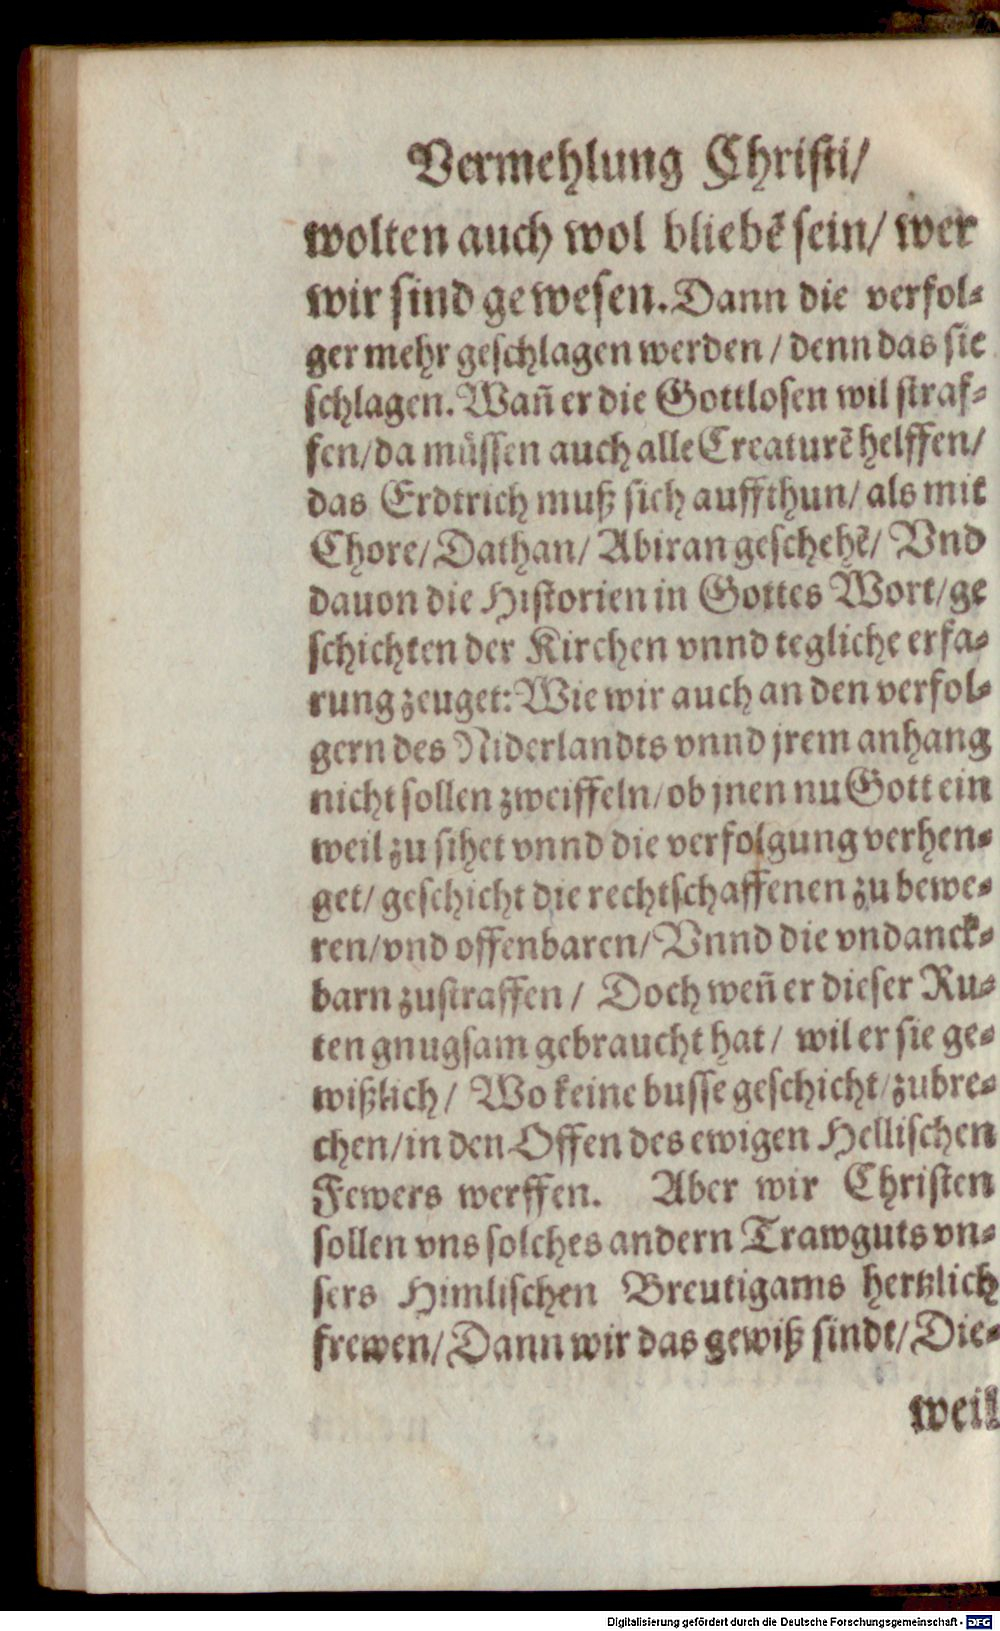 Vermehlung Christi/
wolten auch wol bliebē sein/ wer
wir sind gewesen. Dann die verfol⸗
ger mehr geschlagen werden / denn das sie
schlagen. Wañ er die Gottlosen wil straf⸗
fen/ da müssen auch alle Creaturē helffen/
das Erdtrich muß sich auffthun/ als mit
Chore/ Dathan/ Abiran geschehē/ Vnd
dauon die Historien in Gottes Wort/ ge
schichten der Kirchen vnnd tegliche erfa⸗
rung zeuget: Wie wir auch an den verfol⸗
gern des Niderlandts vnnd jrem anhang
nicht sollen zweiffeln/ ob jnen nu Gott ein
weil zu sihet vnnd die verfolgung verhen⸗
get/ geschicht die rechtschaffenen zu bewe⸗
ren/ vnd offenbaren/ Vnnd die vndanck⸗
barn zustraffen / Doch weñ er dieser Ru⸗
ten gnugsam gebraucht hat / wil er sie ge⸗
wißlich / Wo keine busse geschicht/ zubre⸗
chen/ in den Offen des ewigen Hellischen
Fewers werffen. Aber wir Christen
sollen vns solches andern Trawguts vn⸗
sers Himlischen Breutigams hertzlich
frewen/ Dann wir das gewiß sindt/ Die⸗
weil
Digitalisierung gefördert durch die Deutsche Forschungsgemeinschaft - DFG